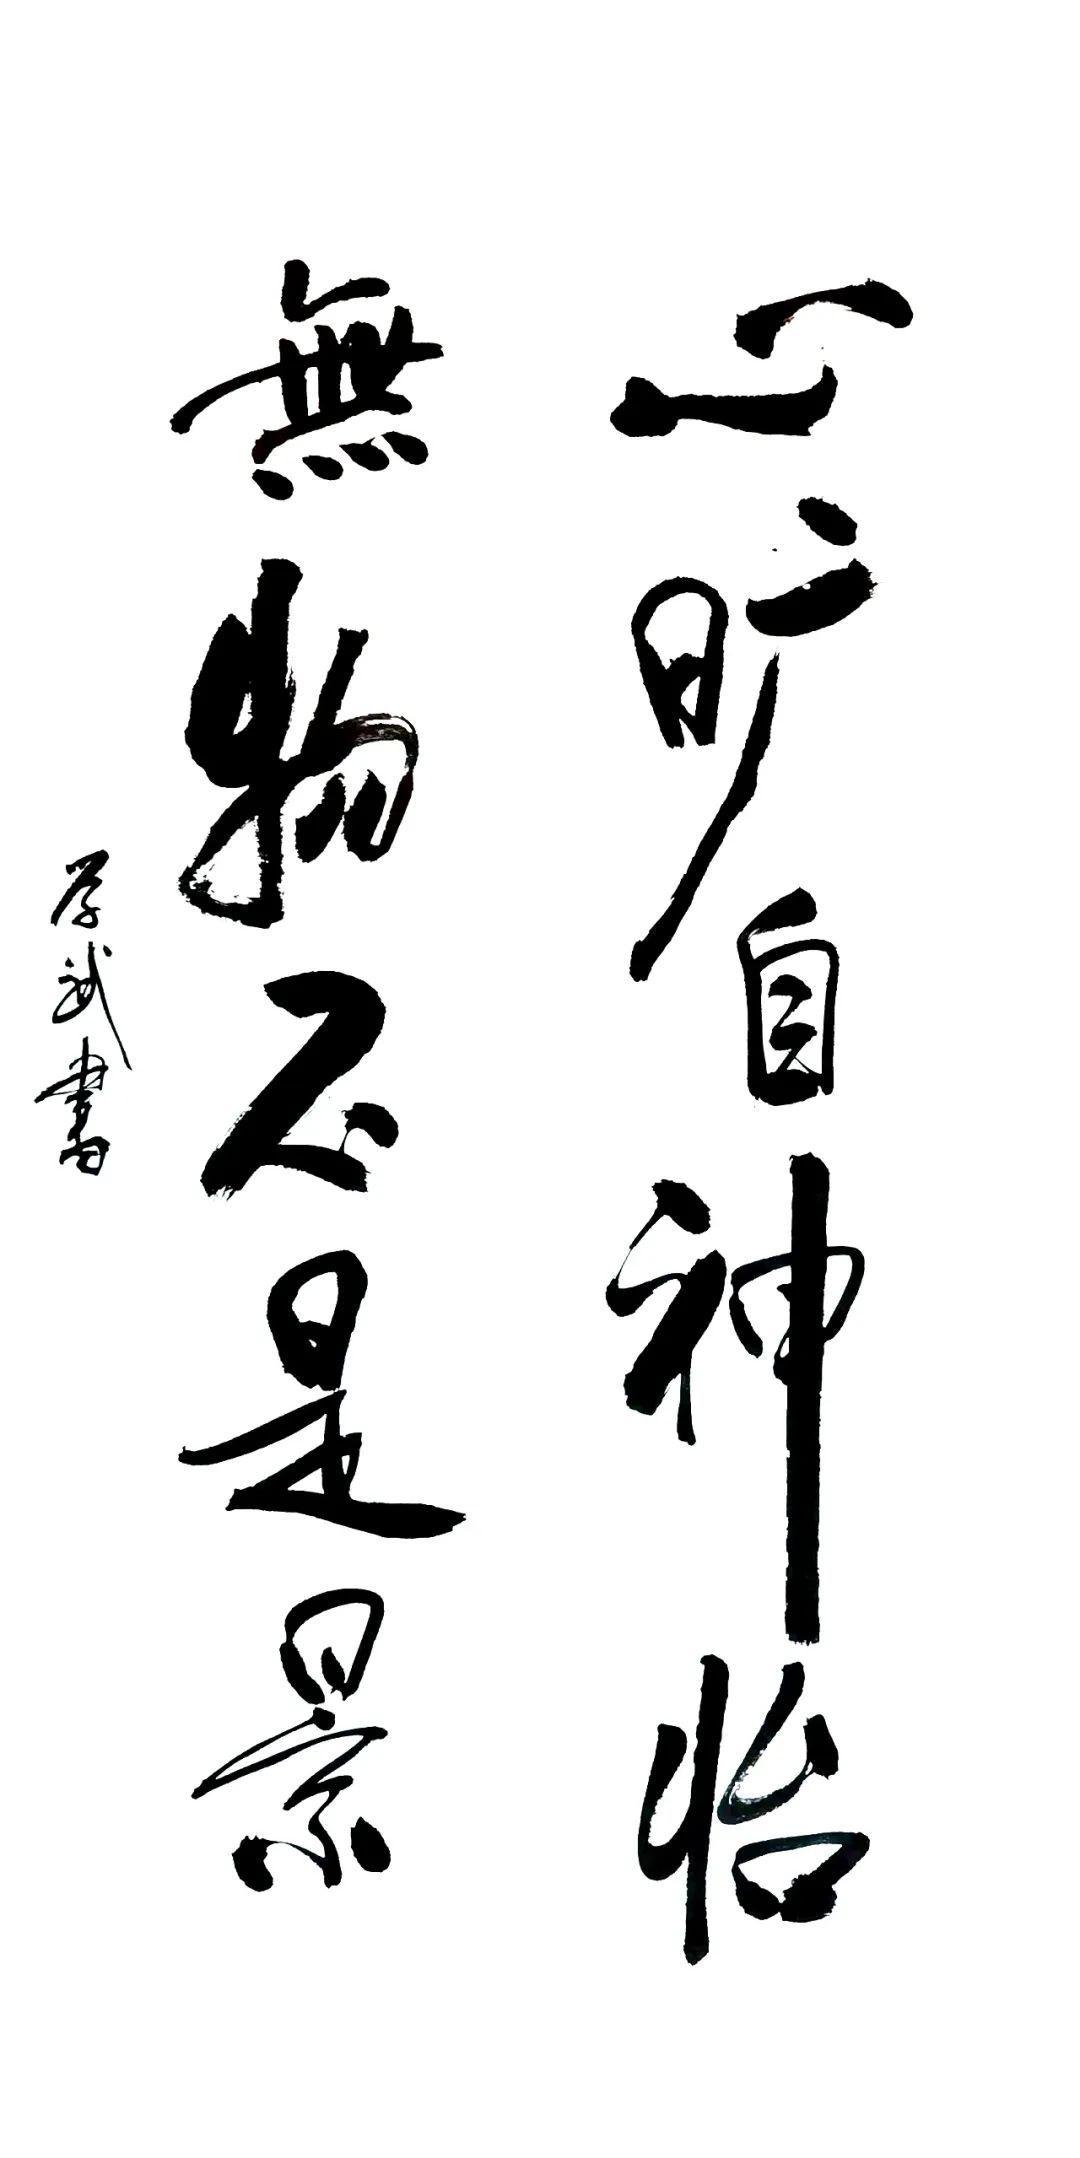 心旷自神怡
無物不是景
学武書